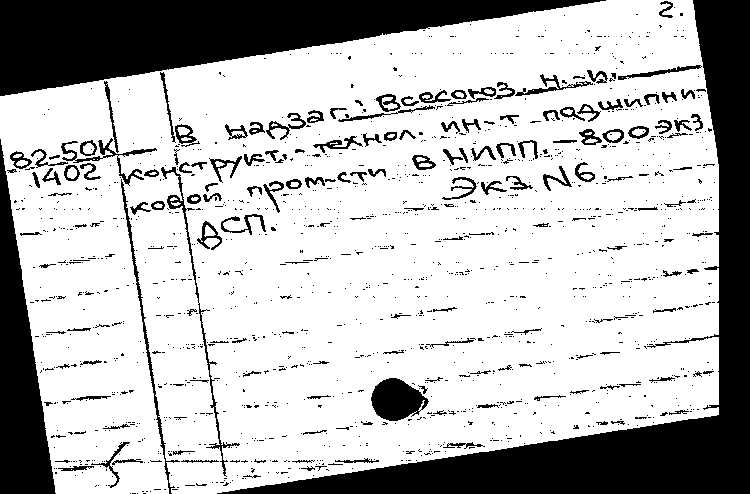 2.
82-50К
1402
В надзаг.: Всесоюз. н.-и.
конструкт.-технол. ин-т подшипни-
ковой пром-сти ВНИПП. — 800 экз.
ДСП. Экз. N6.